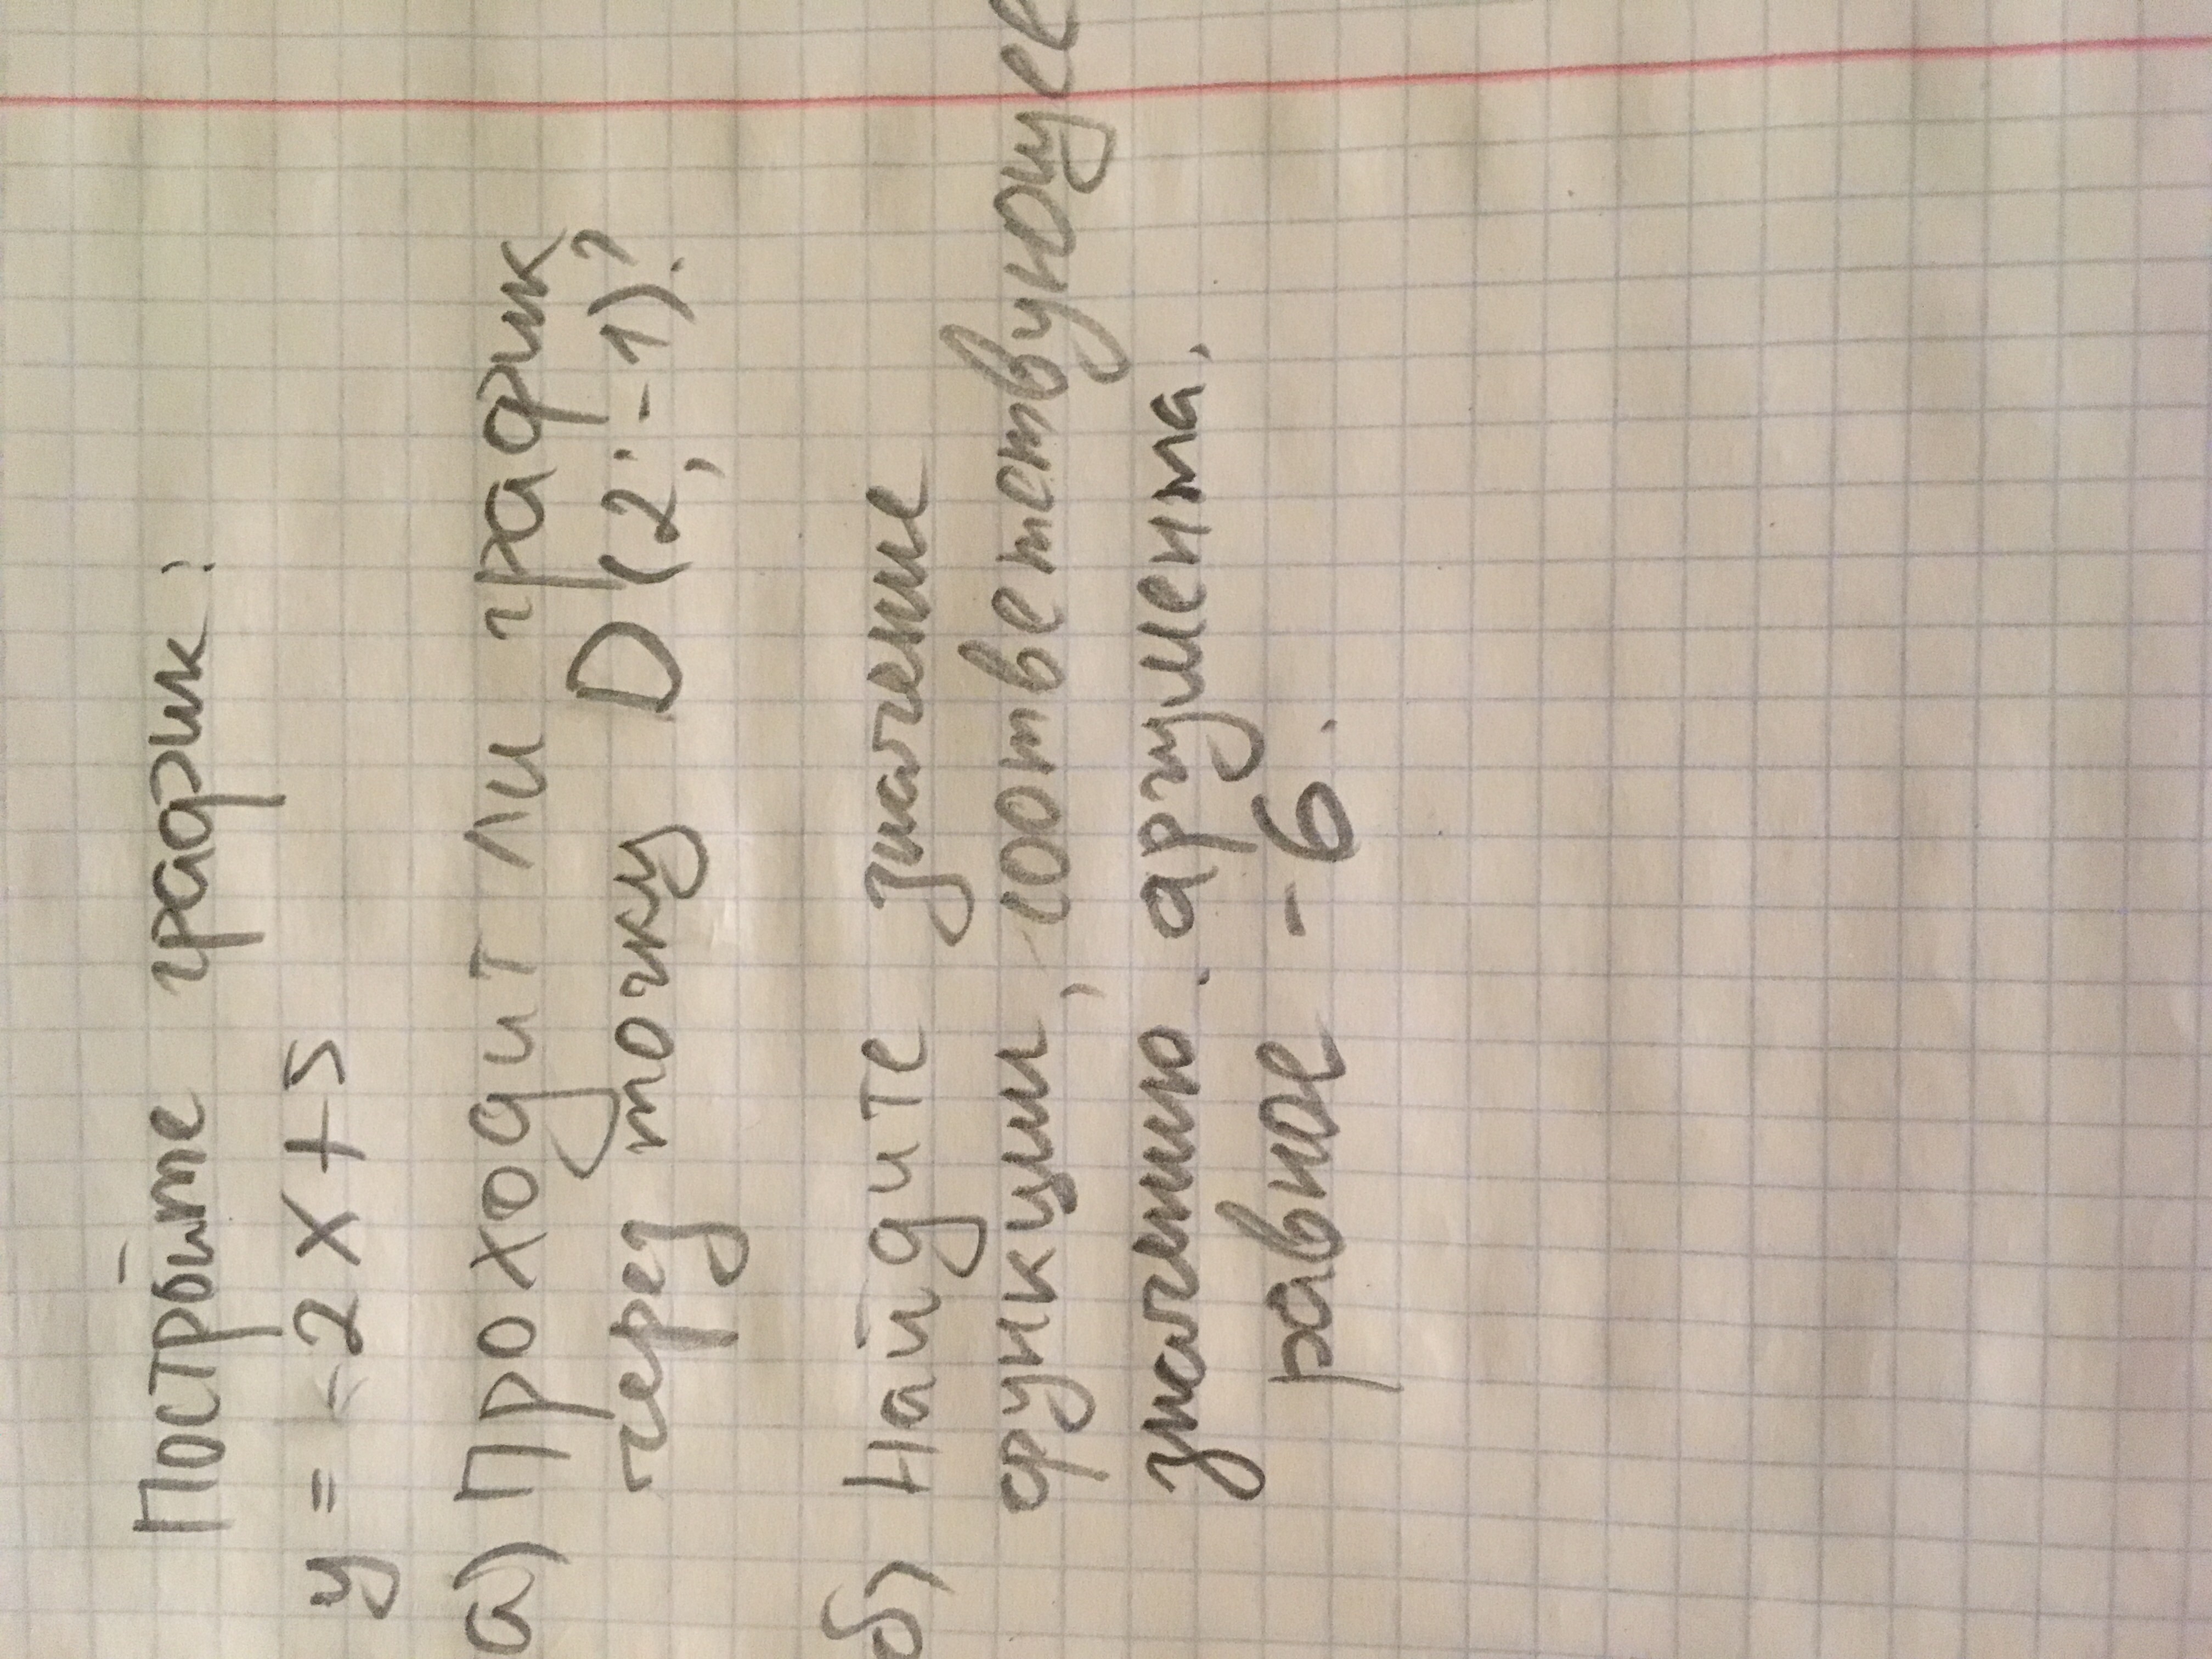 Постройте график:
y = -2x+5
а) Проходит ли график
через точку D(2;-1)?
б) Найдите значение
функции, соответствующее
значению аргумента,
равное -6.